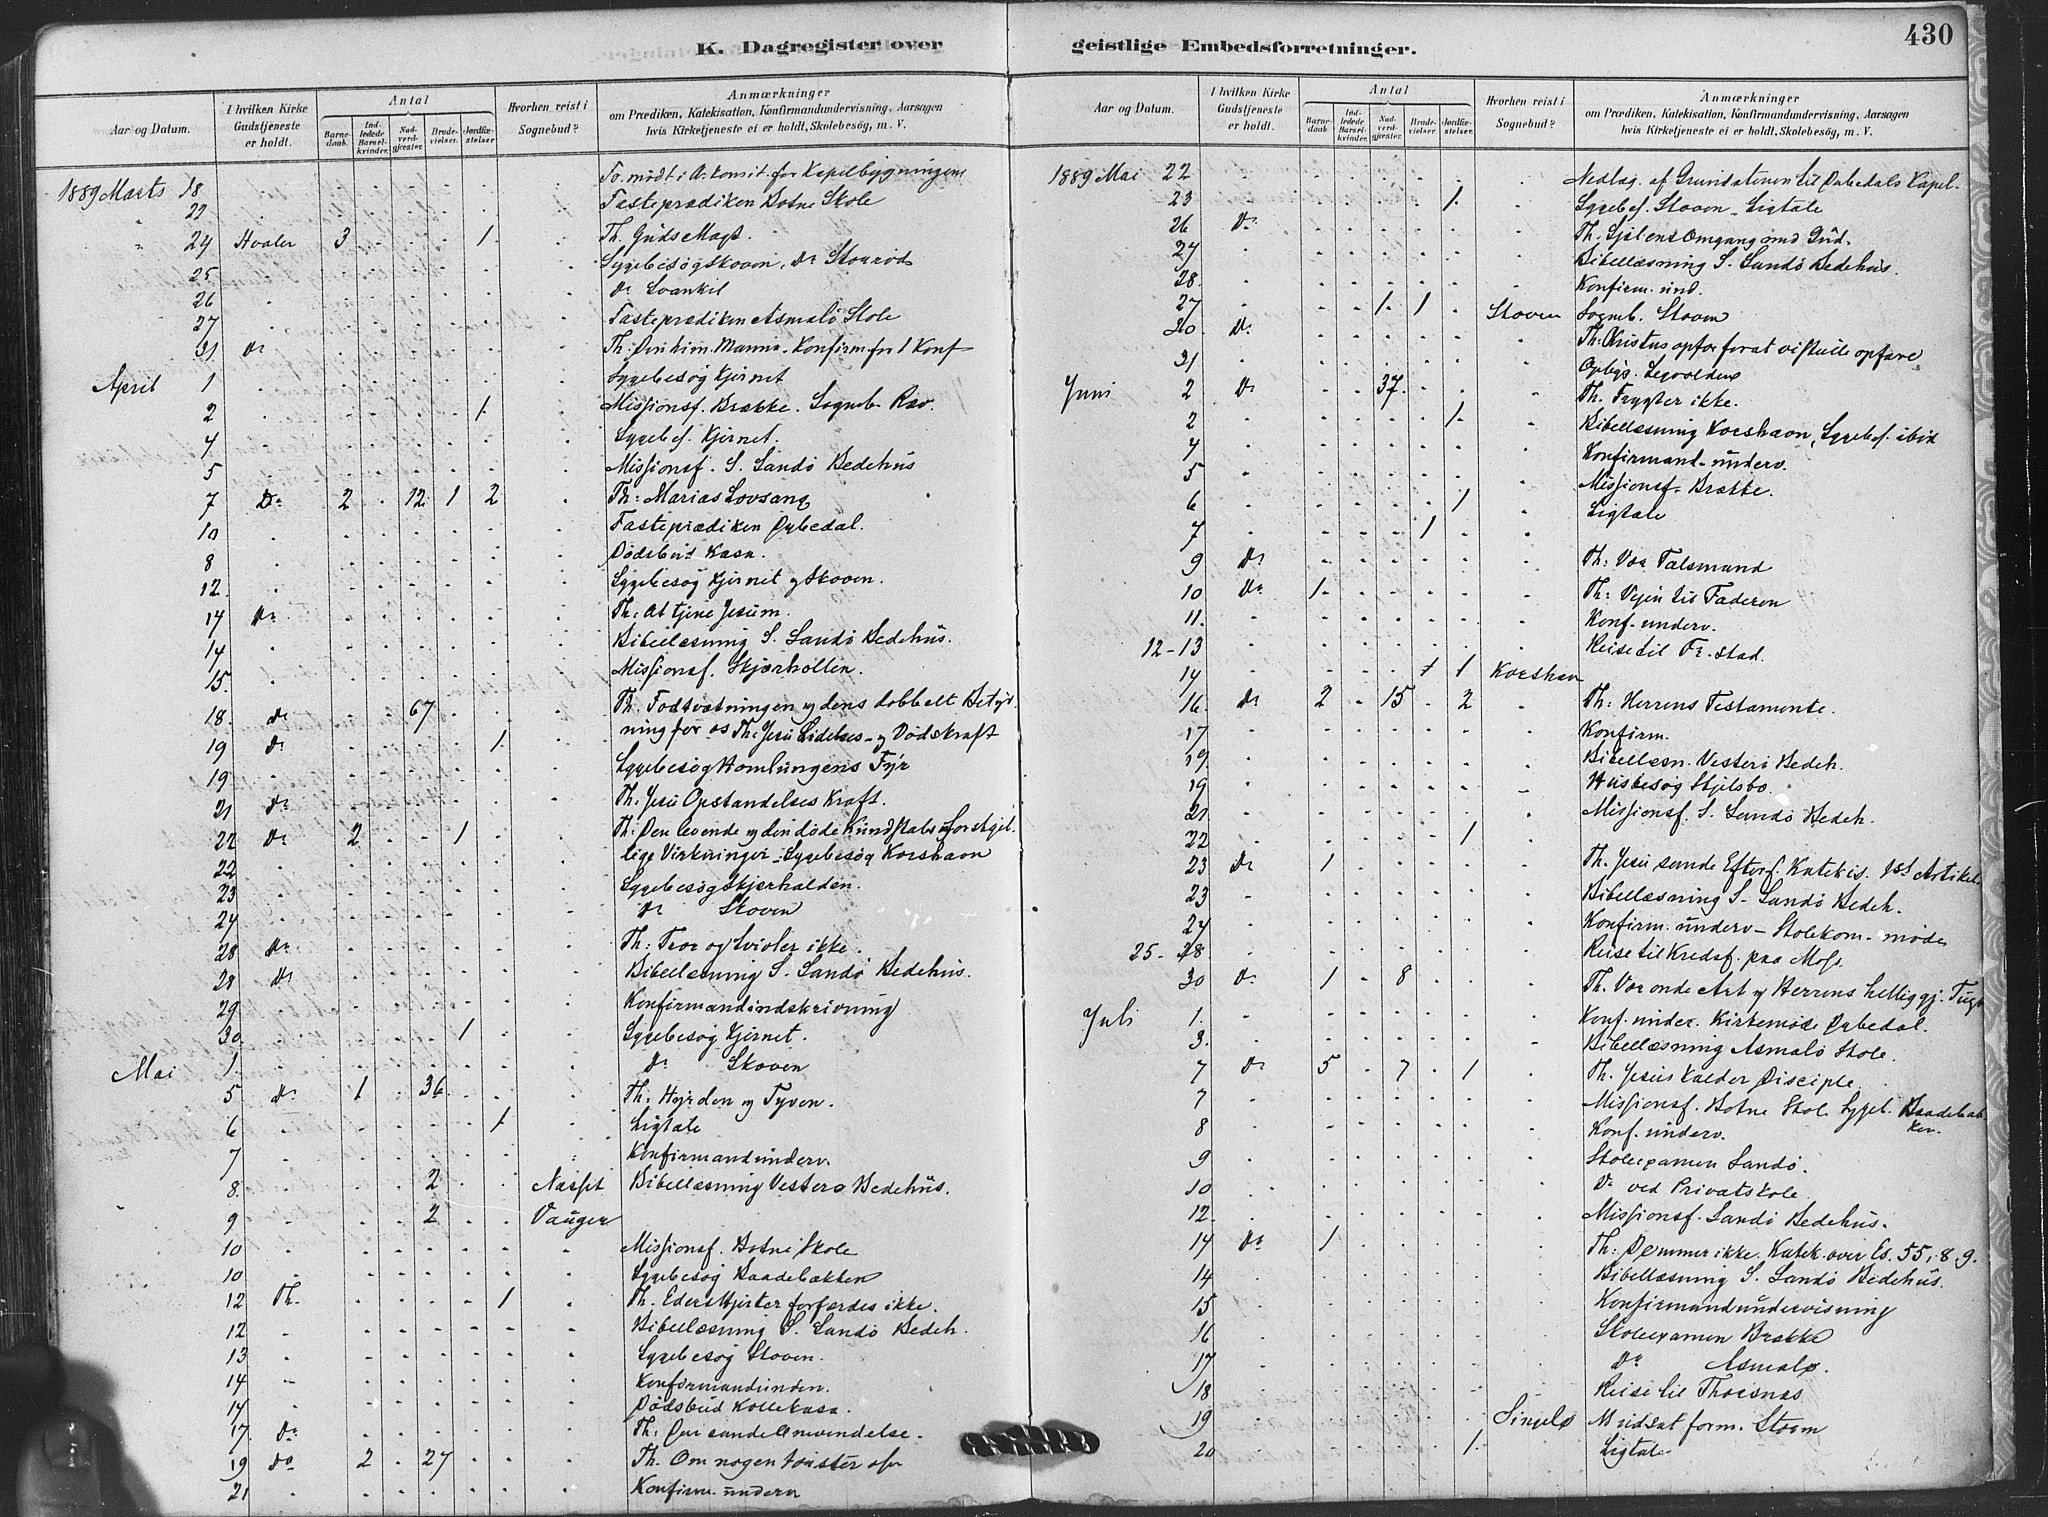 K. Dagregister over geistlige Embedsforretninger.
430
Aar og Datum.
I hvilken Kirke Gudstjeneste er holdt.
Antal
Barnedaab.
Indledede Barselkvinder.
Nadverdgjæster.
Brudevielser.
Jordfæstelser
Hvorhen reist i Sognebud?
Anmærkninger
om Prædiken, Katekisation, Konfirmandundervisning, Aarsagen
hvis Kirketjeneste ei er holdt, Skolebesög, m. V.
1889 Marts 18 for Kapelbygningen
Fasteprædiken Botne Skole
24 Hvaler 3 1 Th. Guds Magt.
25 Sygebesøg Skoven, Do Storrød
26 Do
27 Fasteprædiken Asmalø Skole
31 Do Th: Den him. Manna. Konfirm for 1 Konf
April 1 Sygebesøg Kjernet
2 1 Missionsf. Brække. Sogneb. Røv.
4 Sygebes. Kjernet.
5 Missionsf. S. Sandø Bedehus
7 Do 2 12 1 2 Th: Marias Lovsang
10 Fasteprædiken Dybedal.
8 Dødsbud Kasa.
12. Sygebesøg Kjernet og Skoven.
14 Do Th: At tjene Jesum.
14 Bibellæsning S. Sandø Bedehus.
15. Missionsf. Skjærhollen.
18. Do 67 Th. Fodtvætningen og dens dobbelt Betyd
ning for os
19 Do 1 Th: Jesu Lidelses- og Dødskraft
19 Sygebesøg Homlungens Fyr
21 Do Th. Jesu Opstandelses Kraft.
22 Do 2 1 Th: Den levende og den døde Kundskabs forskjel
lige Virkninger. Sygebesøg Korshavn
22
23 Sygebesøg Skjærhalden.
24 Do Skoven
28 Do Th: Tror og tvivler ikke.
28 Do Bibellæsning S. Sandø Bedehus.
29 Konfirmandindskrivning
30 1 Sygebesøg Kjernet.
Mai 1. Do Skoven
5 Do 1 36 Th: Hyrden og Tyven.
6 1 Ligtale
7 Konfirmandunderv.
8. 2 Næsset Bibellæsning Vesterø Bedehus.
9 2 Vauger
10 Missionsf. Botne Skole
10 Sygebesøg Baadebakken
12 Th. 1 Th. Eders Hjerter forfærdes ikke.
12 Bibellæsning S. Sandø Bedeh.
13 Sygebesøg Skoven.
14 Konfirmandunden.
14 Dødsbud Kollekasa.
17. Do Th: Den sande Anvendelse.
19 Do 2 27 Th. Om nogen tørster osv
21 Konfirm. underv
Aar og Datum.
I hvilken Kirke Gudstjeneste er holdt.
Antal
Barnedaab.
Indledede Barselkvinder.
Nadverdgjæster.
Brudevielser.
Jordfæstelser.
Hvorhen reist i Sognebud?
Anmærkninger
om Prædiken, Katekisation, Konfirmandundervisning, Aarsagen
hvis Kirketjeneste ei er holdt, Skolebesög, m. V.
1889 Mai 22 Nedlæg. af Grundstenen til Dybedals Kapel.
23 1. Sygebes. Skoven. Ligtale
26 Do Th. Sjelens Omgang med Gud.
27 Bibellæsning S. Sandø Bedehus.
28. Konfirm. und.
27 1. 1. Skoven Sogneb. Skoven
30. Do Th: Kristus opfor forat vi skulle opfare
31
Juni 2 Do 37. Th. Frygter ikke.
2 1. Bibellæsning Korshavn, Sygebes. ibid
4 Konfirmand. underv.
5 Missionsf. Brække.
6 1 Ligtale
7 1
9 Do Th: Vor Talsmand
10 Do 1. Th: Vejen til Faderen
11. Konf. underv.
12-13 Reise til Fr. stad.
14 1 1 Korshavn
16. Do 2 15 2 Th: Herrens Testamente.
17 Konfirm.
19. Bibellæsn. Vesterø Bedeh.
19 Husbesøg Skjelsbo.
21 Missionsf. S. Sandø Bedeh.
22 1
23 Do 1 Th. Jesu sande Efterf. Katekis. 1st Artikel.
23 Bibellæsning S. Sandø Bedeh.
24 Konfirm. underv. Skolekom. møde
25-28. Reise til Kredsf. paa Moss.
30 Do 1 8 Th. Vor onde Art og Herrens helliggj. Tugt
Juli 1. Konf. under. Kirkemøde Dybedal.
3. Bibellæsning Asmalø Skole.
7 Do 5 7 1 Th. Jesus kalder Disciple.
7 Missionsf. Botne Skol. Sygeb. Baadebak
ken.
8 Konf. underv.
9 Skolexamen Sandø.
10 Do ved Privatskole
12. Missionsf. Sandø Bedehus.
14 Do 1 Th: Dømmer ikke. Katek. over Es. 55, 8, 9.
14 Bibellæsning S. Sandø Bedehus.
15 Konfirmandundervisning
16 Skolexamen Brække
17 Do Asmalø.
18 Reise til Thorsnæs
19 Singelø form. Storm
20 1. Ligtale